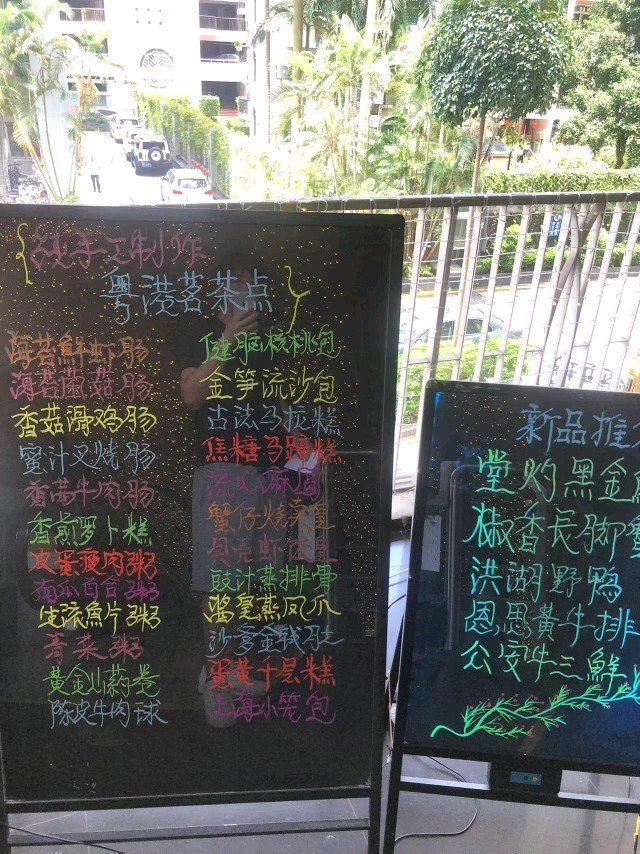 纯手工制作
粤港茗茶点
海苔鲜虾肠
海苔菌菇肠
香菇滑鸡肠
蜜汁叉烧肠
香茜牛肉肠
香煎罗卜糕
皮蛋瘦肉粥
南瓜百合粥
生滚魚片粥
青菜粥
黄金山药卷
陈皮牛肉球
健脑核桃包
金笋流沙包
古法马拉糕
焦糖马蹄糕
流心麻
蟹仔烧卖皇
贝壳虾饺皇
豉汁蒸排骨
鲍蒸凤爪
沙爹金钱肚
蛋黄千层糕
上海小笼包
新品推
堂灼黑金
椒香長脚
洪湖野鸭
恩恩黄牛排
公安牛三鮮